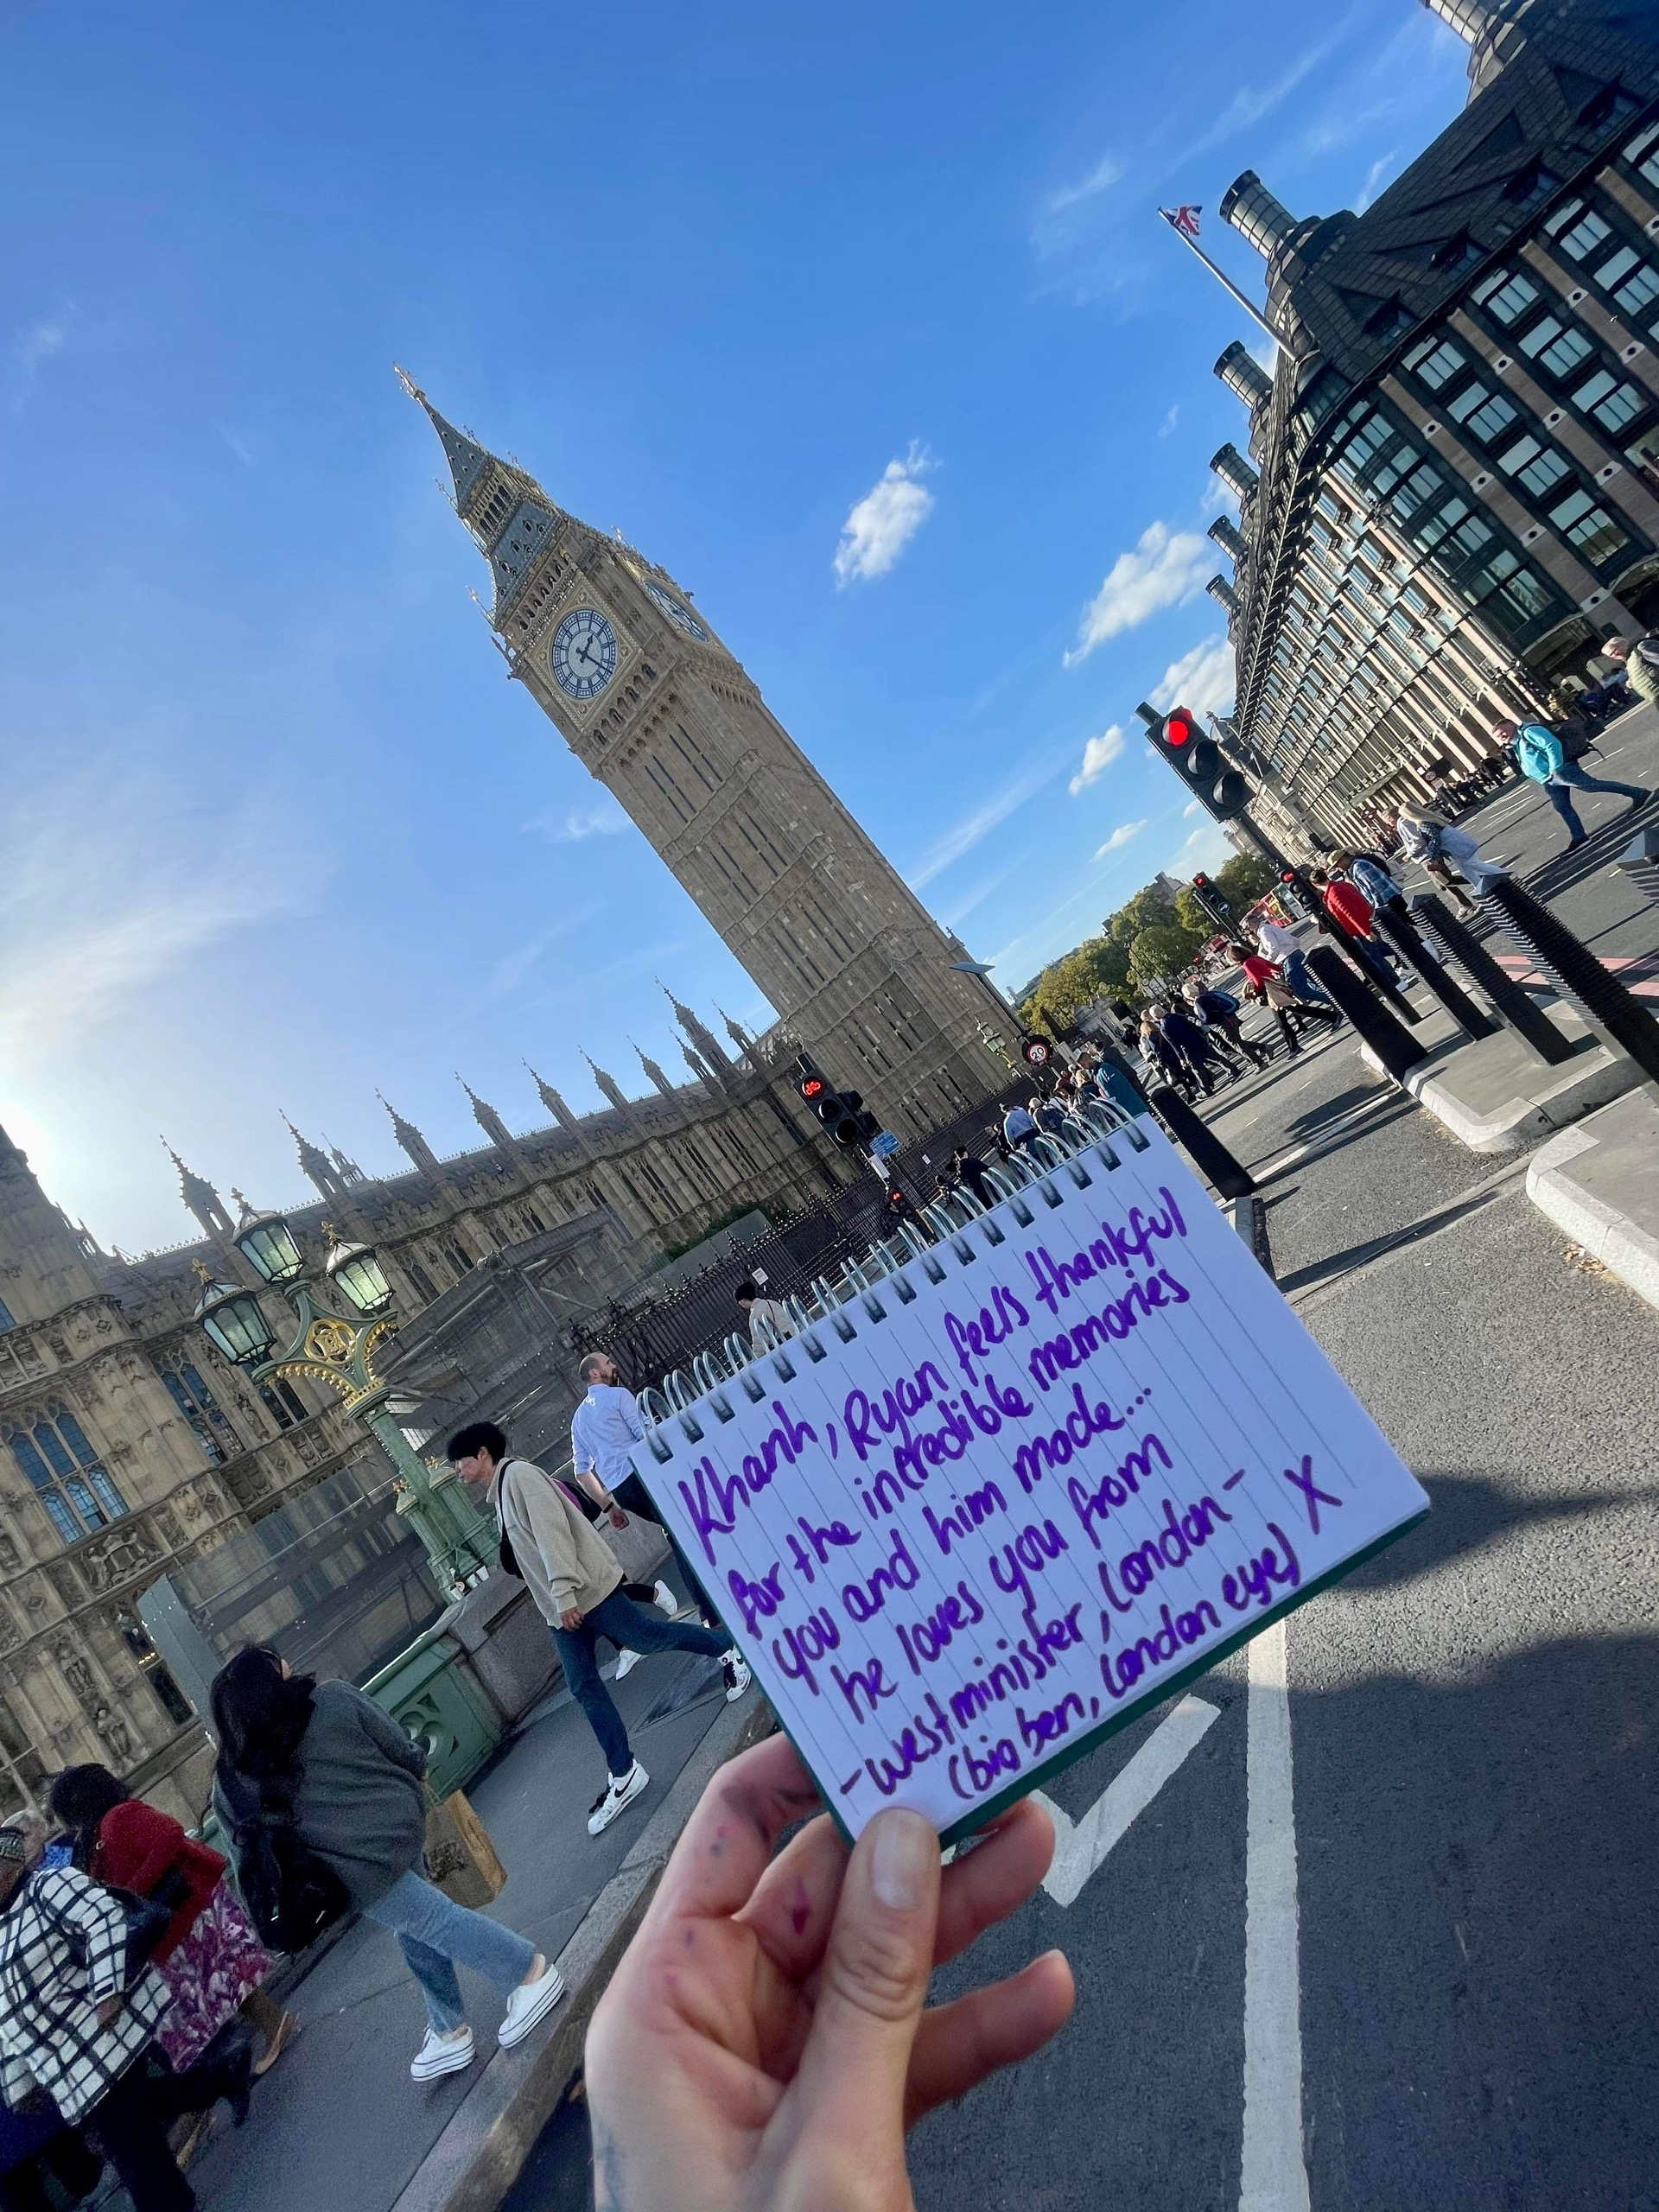 Khanh, Ryan feels thankful
for the incredible memories
you and him made...
he loves you from
-westminister, london-
(big ben, london eye) X
20